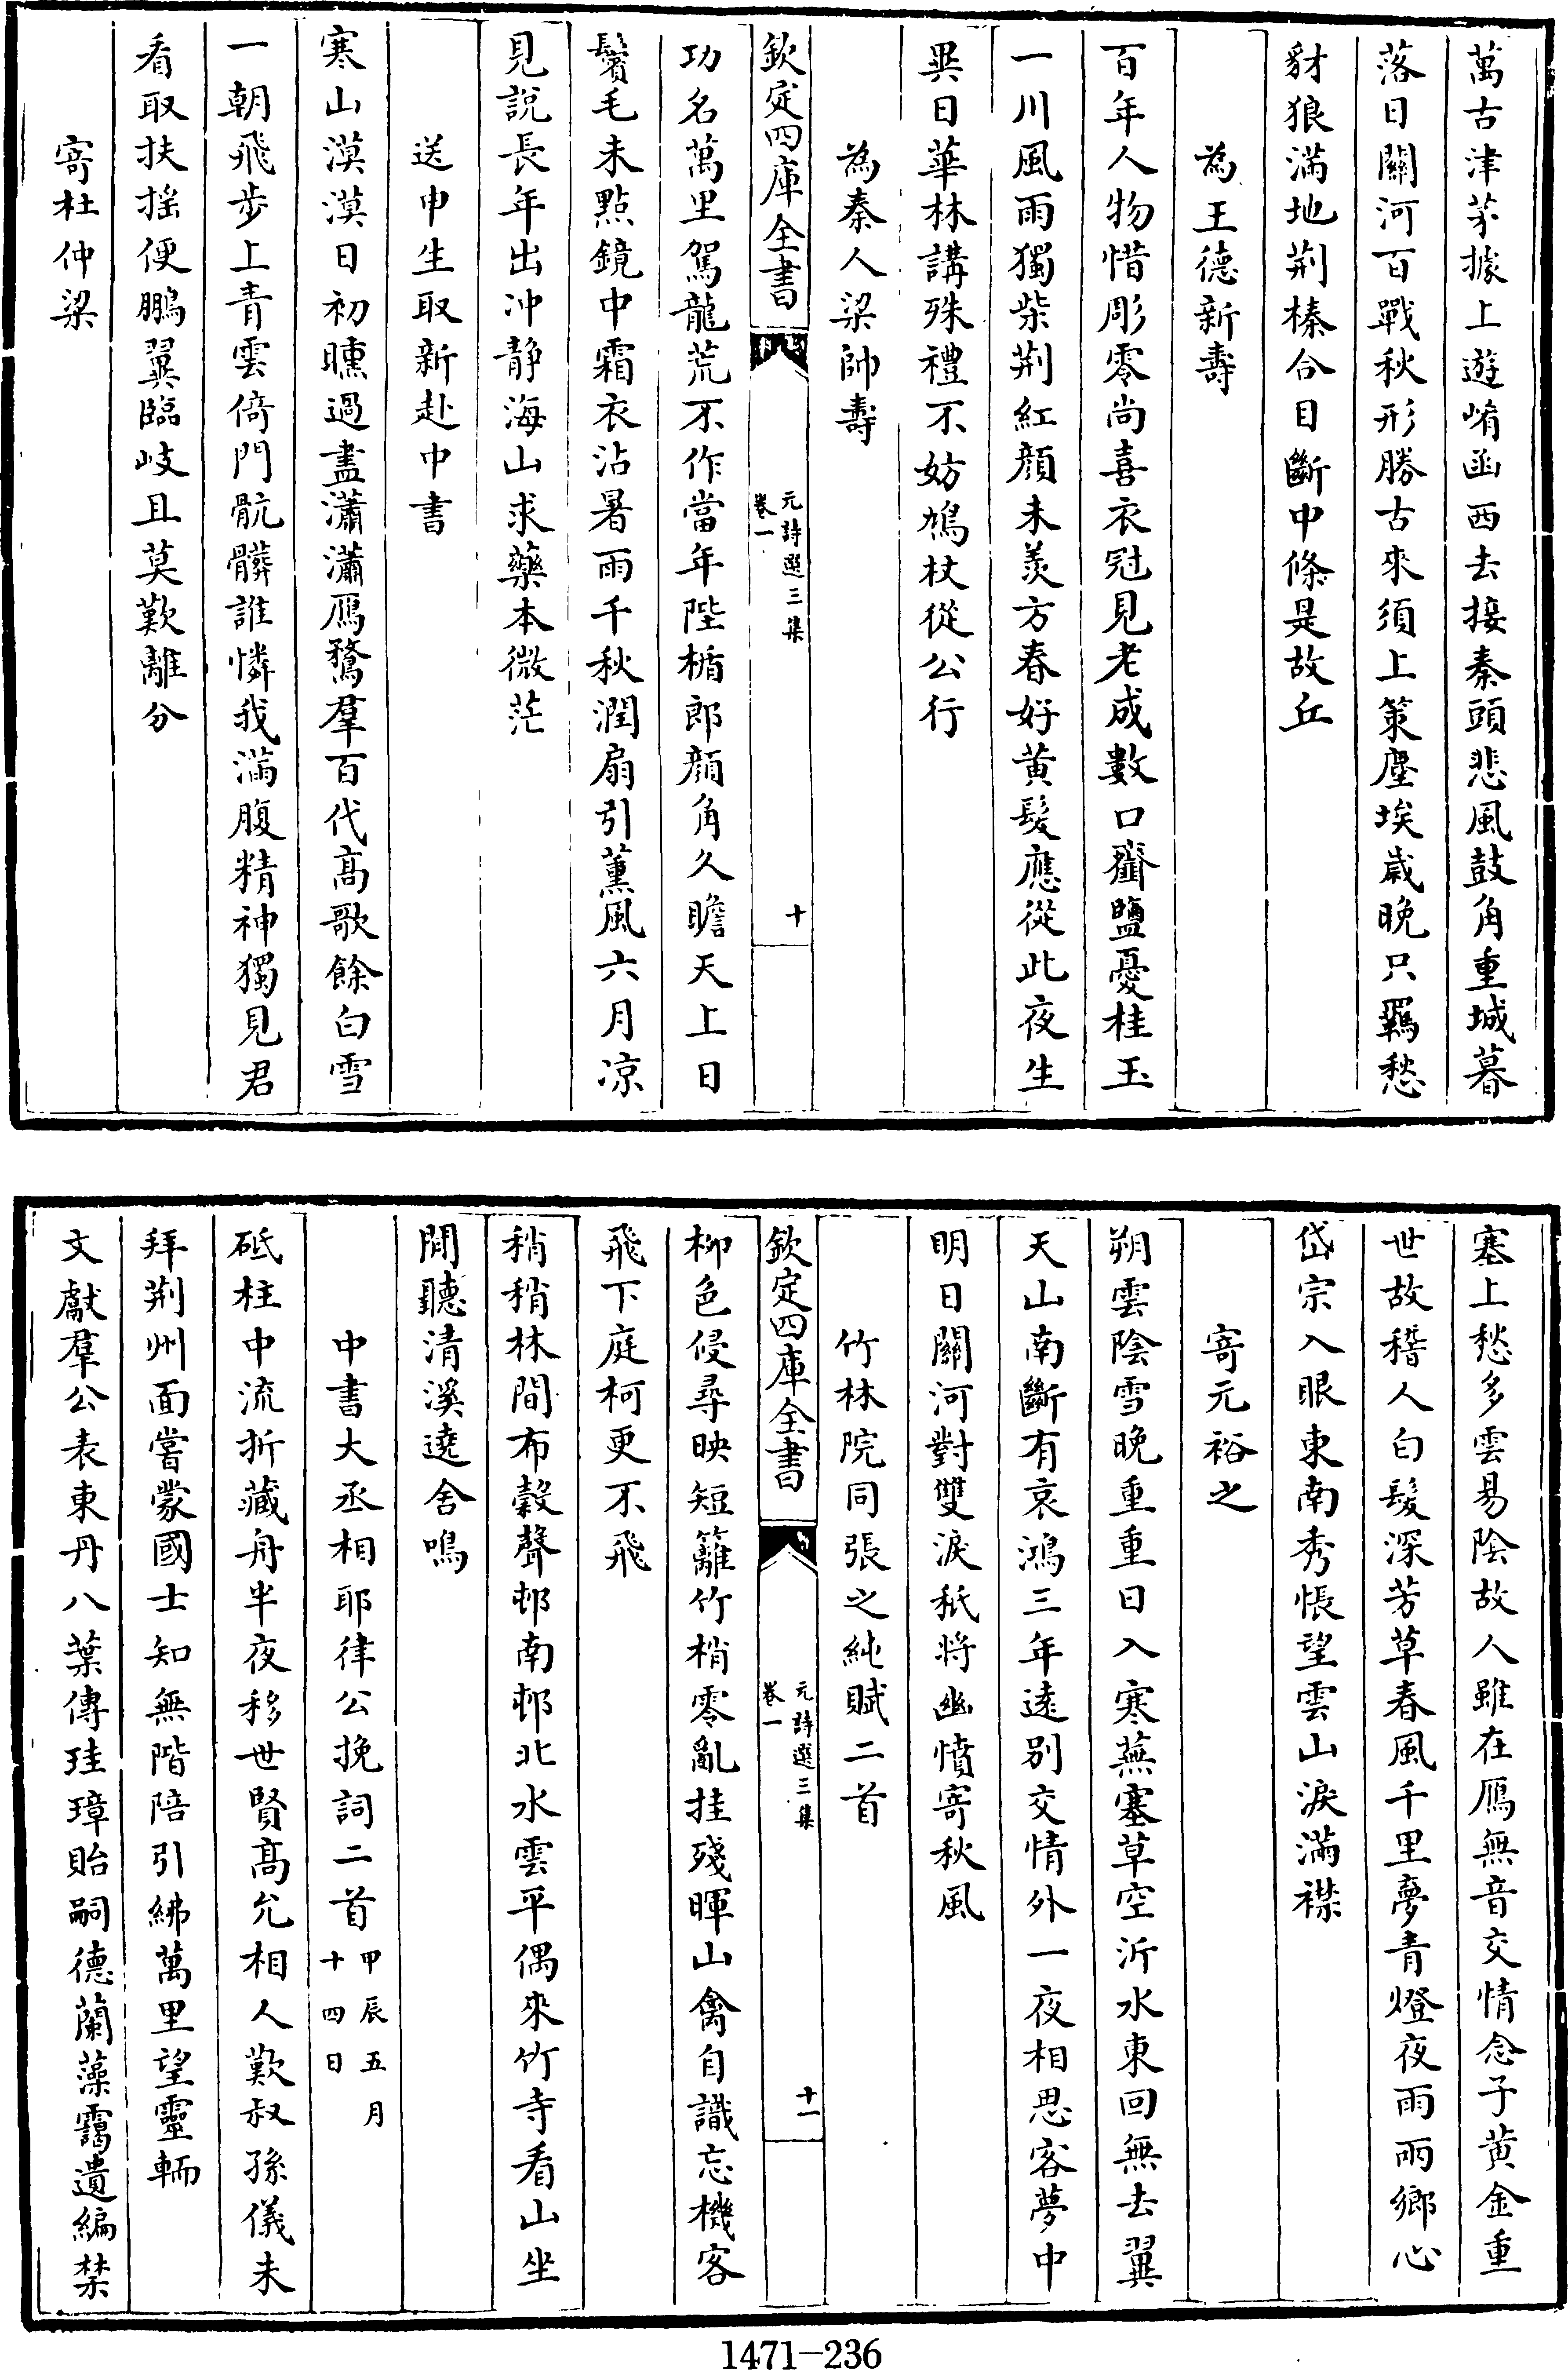 萬古津茅據上遊崤函西去接秦頭悲風鼓角重城暮
落日關河百戰秋形勝古來須上策塵埃歲晩只羈愁
豺狼滿地荆榛合目斷中條是故丘
為王德新壽
百年人物惜彫零尚喜衣冠見老成數口虀鹽憂桂玉
一川風雨獨柴荆紅顔未羨方春好黄髮應從此夜生
異日華林講殊禮不妨鳩杖從公行
為秦人梁帥壽
欽定四庫全書
元詩選三集
卷一
十
功名萬里駕龍荒不作當年陛楯郎顔角久瞻天上日
鬢毛未點鏡中霜衣沾暑雨千秋潤扇引薰風六月凉
見說長年出冲静海山求藥本微茫
送申生取新赴中書
寒山漠漠日初曛過盡瀟瀟鴈鶩羣百代高歌餘白雪
一朝飛步上青雲倚門骯髒誰憐我滿腹精神獨見君
看取扶揺便鵬翼臨岐且莫歎離分
寄杜仲梁
塞上愁多雲易陰故人雖在鴈無音交情念子黄金重
世故稽人白髮深芳草春風千里夢青燈夜雨兩鄉心
岱宗入眼東南秀悵望雲山淚滿襟
寄元裕之
朔雲陰雪晚重重日入寒蕪塞草空沂水東回無去翼
天山南斷有哀鴻三年遠别交情外一夜相思客夢中
明日關河對雙淚秖將幽憤寄秋風
竹林院同張之純賦二首
欽定四庫全書
元詩選三集
卷一
十一
柳色侵尋映短籬竹梢零亂挂殘暉山禽自識忘機客
飛下庭柯更不飛
稍稍林間布穀聲邨南邨北水雲平偶來竹寺看山坐
閒聽清溪遶舍鳴
中書大丞相耶律公挽詞二首甲辰五月
十四日
砥柱中流折藏舟半夜移世賢高允相人歎叔孫儀未
拜荆州面嘗蒙國士知無階陪引紼萬里望靈輀
文獻羣公表東丹八葉傳珪璋貽嗣德蘭藻靄遺編禁
1471-236